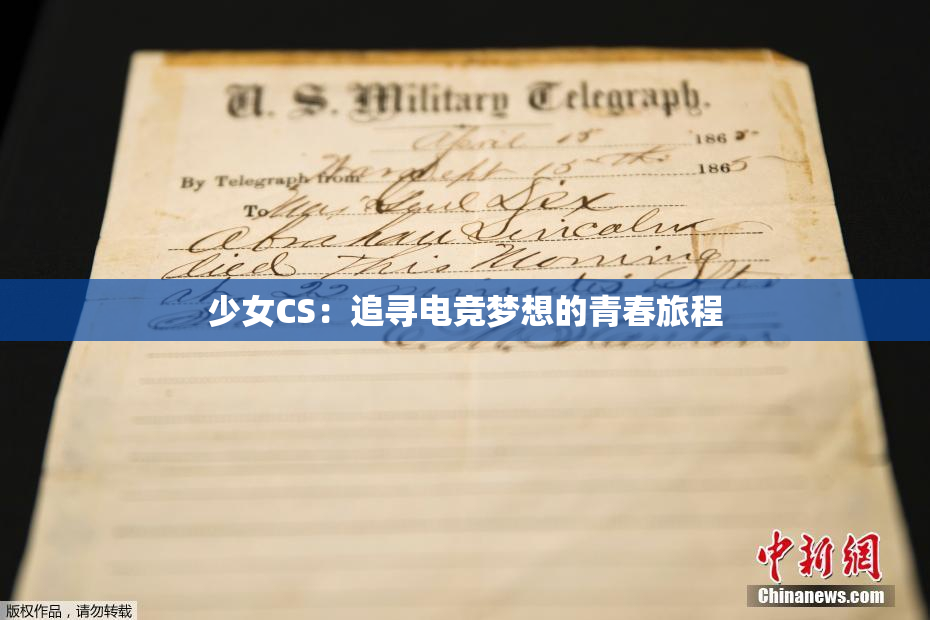 U. S. Military Telegraph.
April 15 1865
By Telegraph from War Dept 15th 1865
To Maj Genl Dix
Abraham Lincoln
died This Morning
at 22 minutes after
少女CS：追寻电竞梦想的青春旅程
中新网
Chinanews.com
版权作品，请勿转载